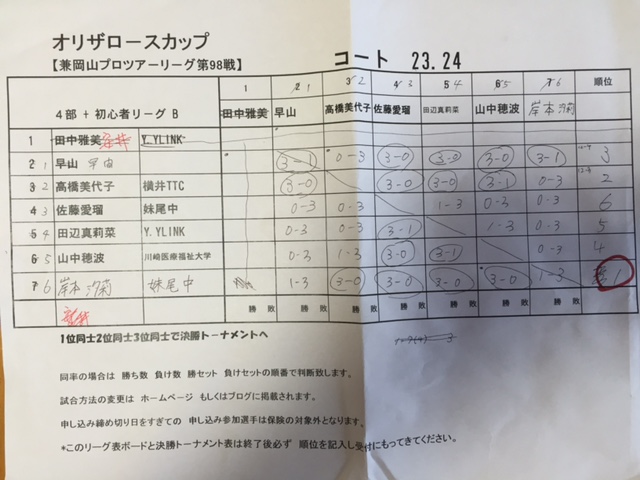 オリザロースカップ
【兼岡山プロツアーリーグ第98戦】 コート 23.24
4部 + 初心者リーグ B 1 田中雅美 2 1 早山 3 2 高橋美代子 4 3 佐藤愛瑠 5 4 田辺真莉菜 6 5 山中穂波 7 6 岸本汐莉 順位
1 田中雅美 Y.YLINK
2 1 早山 早由 3-1 0-3 3-0 3-0 3-0 3-1 3
3 2 高橋美代子 横井TTC 3-0 3-0 3-0 3-1 0-3 2
4 3 佐藤愛瑠 妹尾中 0-3 0-3 1-3 0-3 0-3 6
5 4 田辺真莉菜 Y.YLINK 0-3 0-3 3-1 1-3 0-3 5
6 5 山中穂波 川崎医療福祉大学 0-3 1-3 3-0 3-1 0-3 4
7 6 岸本汐莉 妹尾中 1-3 3-0 3-0 3-0 3-0 1-3 1
勝 敗 勝 敗 勝 敗 勝 敗 勝 敗 勝 敗 勝 敗
1位同士2位同士3位同士で決勝トーナメントへ
同率の場合は 勝ち数 負け数 勝セット 負けセットの順番で判断致します。
試合方法の変更は ホームページ もしくはブログに掲載されます。
申し込み締め切り日をすぎての 申し込み参加選手は保険の対象外となります。
*このリーグ表ボードと決勝トーナメント表は終了後必ず 順位を記入し受付にもってきてください。